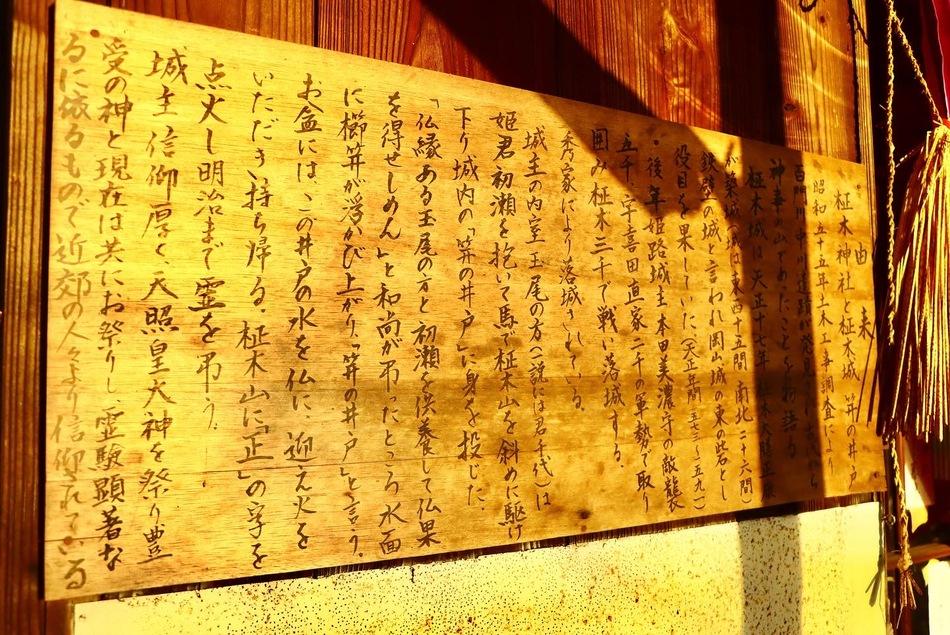 由来
柾木神社と柾木城 笄の井戸
昭和五十五年土木工事調査により
百間川中川遺跡が発見され古代から
神奈の山であったことを物語る
柾木城は天正十七年
が築城(城は東西十五間 南北二十六間)
鉄壁の城と言われ岡山城の東の砦とし
役目を果していた(天正年間一五七三〜一五九一)
・後年姫路城主本田美濃守の敵襲
五千、宇喜田直家二千の軍勢で取り
囲み柾木三千で戦い落城する。
家により落城されている。
城主の内室玉尾の方(一説には君千代)は
姫君初瀬を抱いて馬で柾木山を斜めに駆け
下り城内の「笄の井戸」に身を投じた。
「仏縁ある玉尾の方と初瀬を供養して仏果
を得せしめん」と和尚が弔ったところ水面
に櫛笄が浮かび上がり、「笄の井戸」と言う。
お盆には、この井戸の水を仏に、迎え火を
いただき持ち帰る。柾木山に「正」の字を
点火し明治まで霊を弔う。
城主信仰厚く天照皇大神を祭り豊
受の神と現在は共にお祭りし、霊験顕著な
るに依るもので近郊の人々より信仰されている